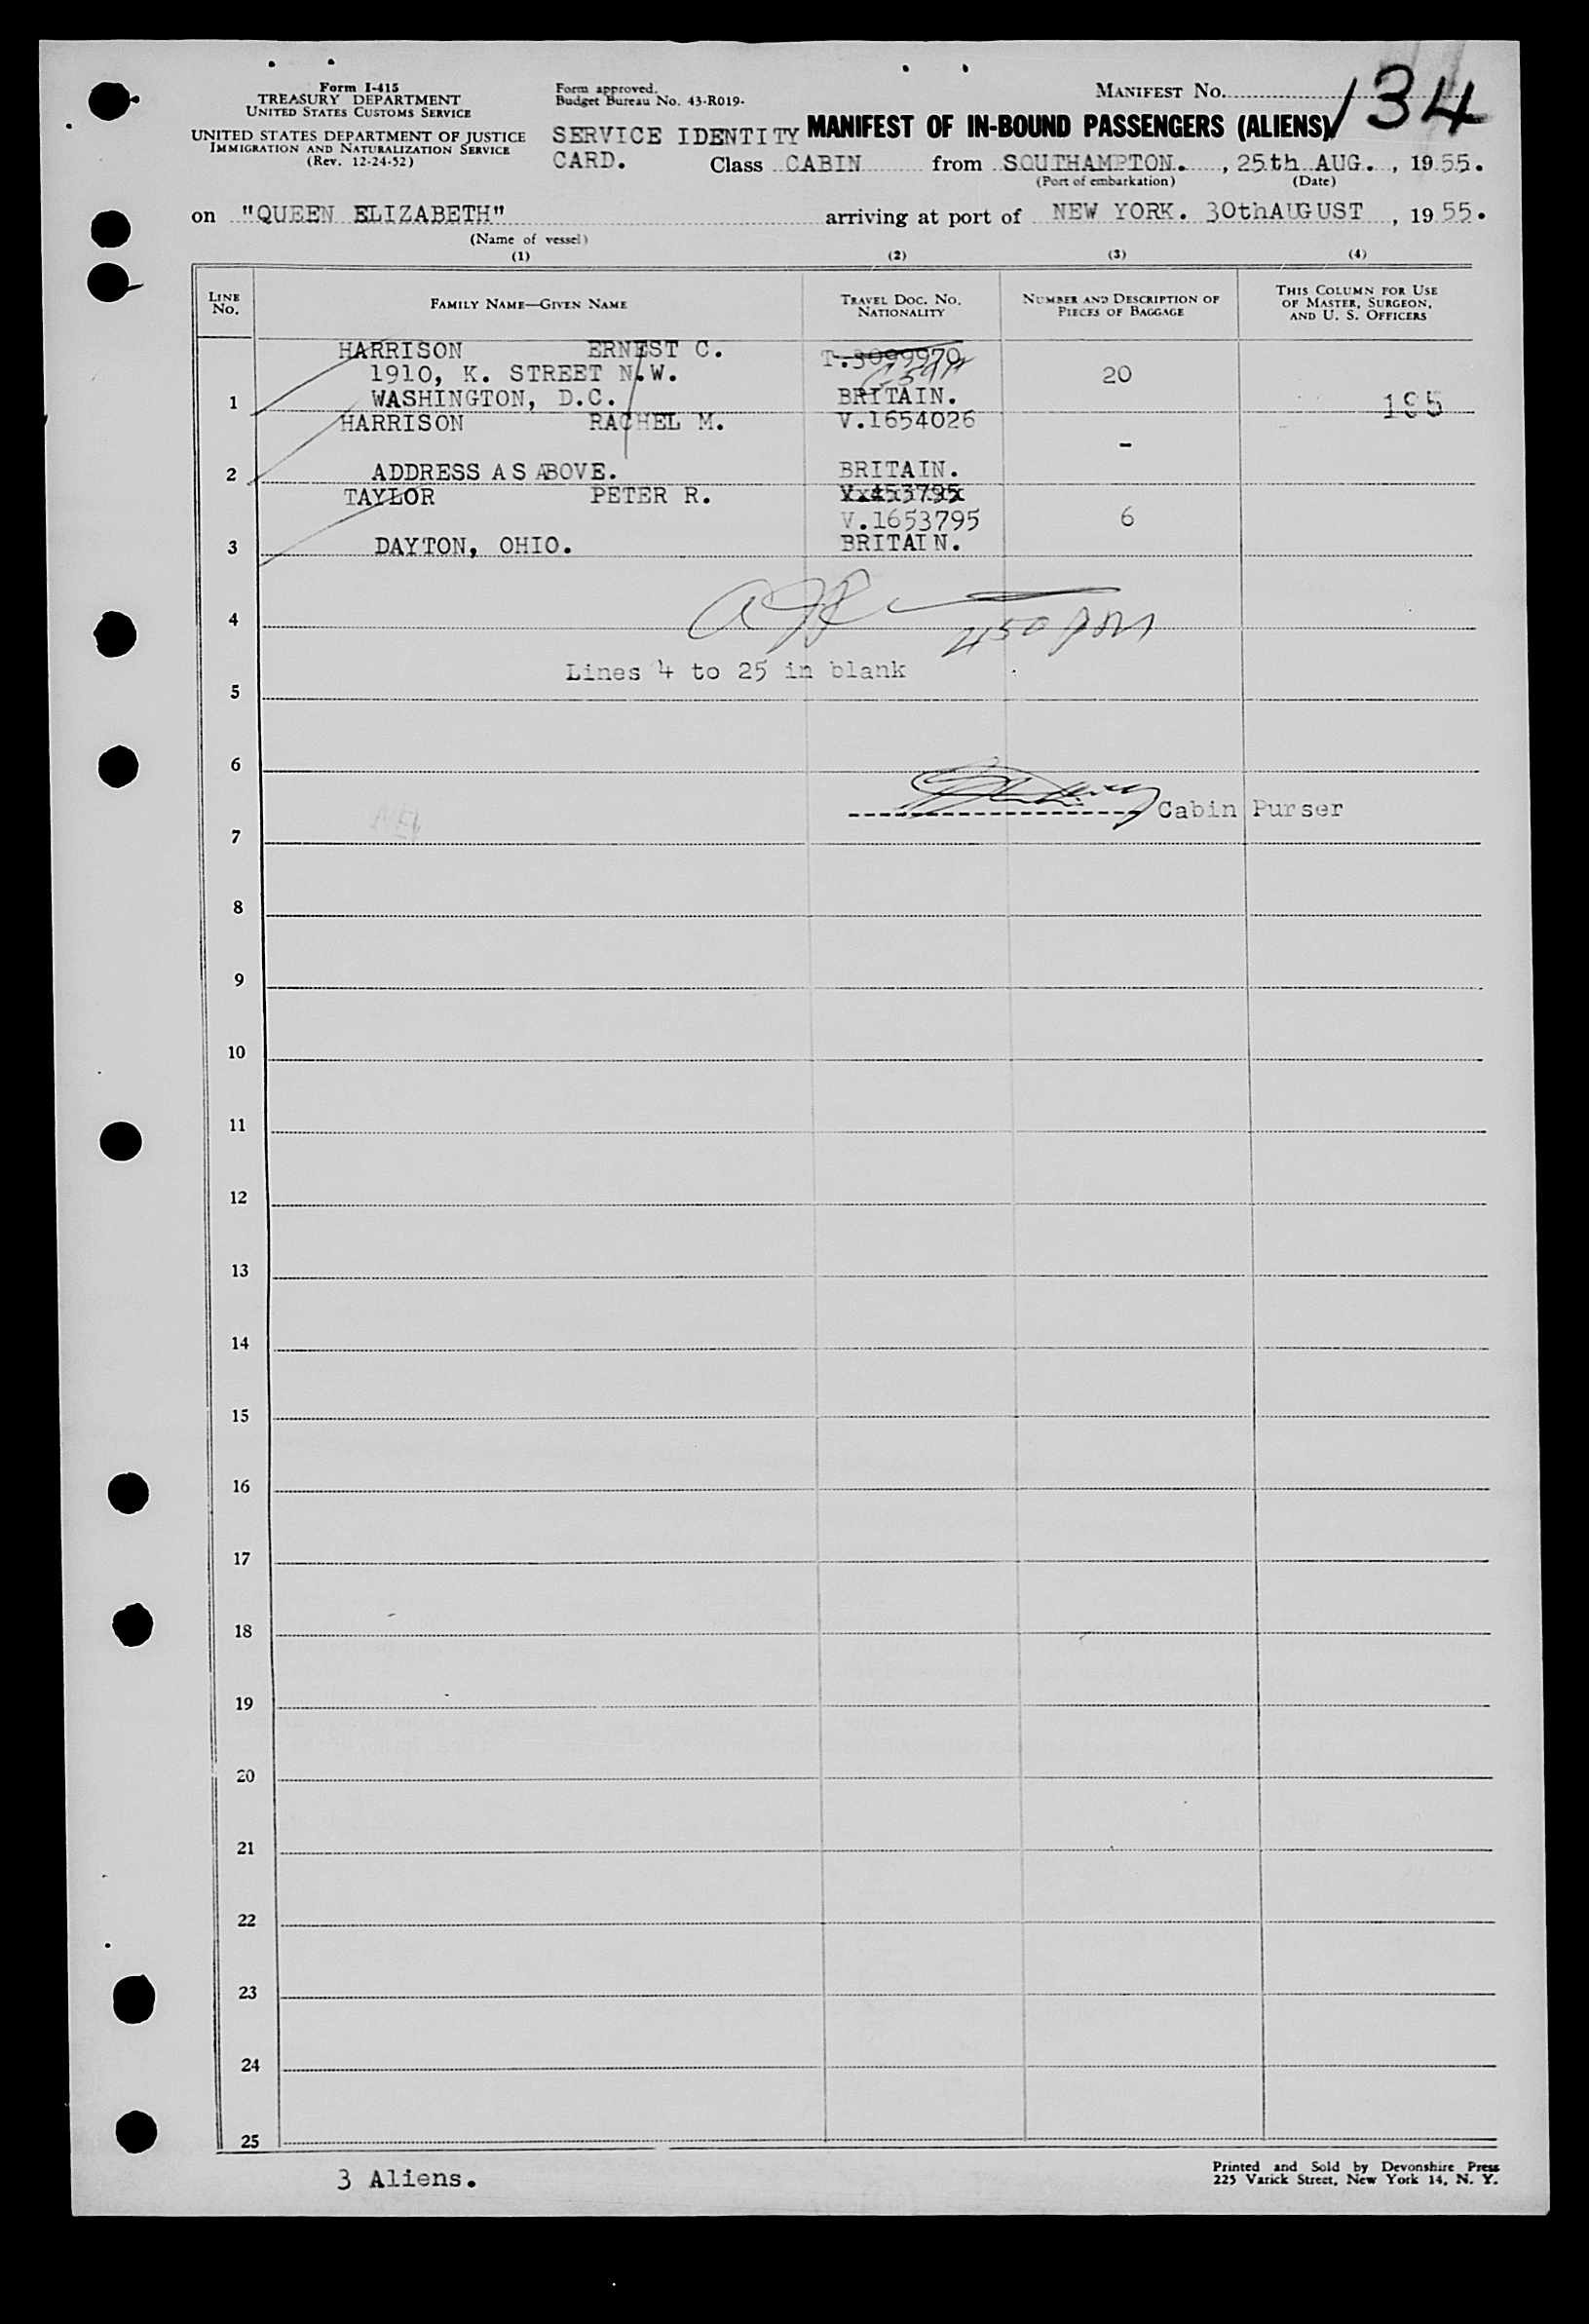 Form I-415
TREASURY DEPARTMENT
UNITED STATES CUSTOMS SERVICE
UNITED STATES DEPARTMENT OF JUSTICE
IMMIGRATION AND NATURALIZATION SERVICE
(Rev. 12-24-52)
Form approved.
Budget Bureau No. 43-R019.
MANIFEST No. 134
SERVICE IDENTITY CARD.
MANIFEST OF IN-BOUND PASSENGERS (ALIENS)
Class CABIN from SOUTHAMPTON. , 25th AUG. , 1955.
(Port of embarkation) (Date)
on "QUEEN ELIZABETH" arriving at port of NEW YORK. 30thAUGUST , 1955.
(Name of vessel)
(1) (2) (3) (4)
LINE No.
FAMILY NAME—GIVEN NAME
TRAVEL DOC. No. NATIONALITY
NUMBER AND DESCRIPTION OF PIECES OF BAGGAGE
THIS COLUMN FOR USE OF MASTER, SURGEON, AND U. S. OFFICERS
HARRISON ERNEST C. T.3099970
1910, K. STREET N.W. 20
1 WASHINGTON, D.C. BRITAIN. 195
HARRISON RACHEL M. V.1654026
-
2 ADDRESS AS ABOVE. BRITAIN.
TAYLOR PETER R. V.453795
V.1653795 6
3 DAYTON, OHIO. BRITAIN.
4
Lines 4 to 25 in blank
5
6
Cabin Purser
7
8
9
10
11
12
13
14
15
16
17
18
19
20
21
22
23
24
25
3 Aliens.
Printed and Sold by Devonshire Press
225 Varick Street, New York 14, N. Y.